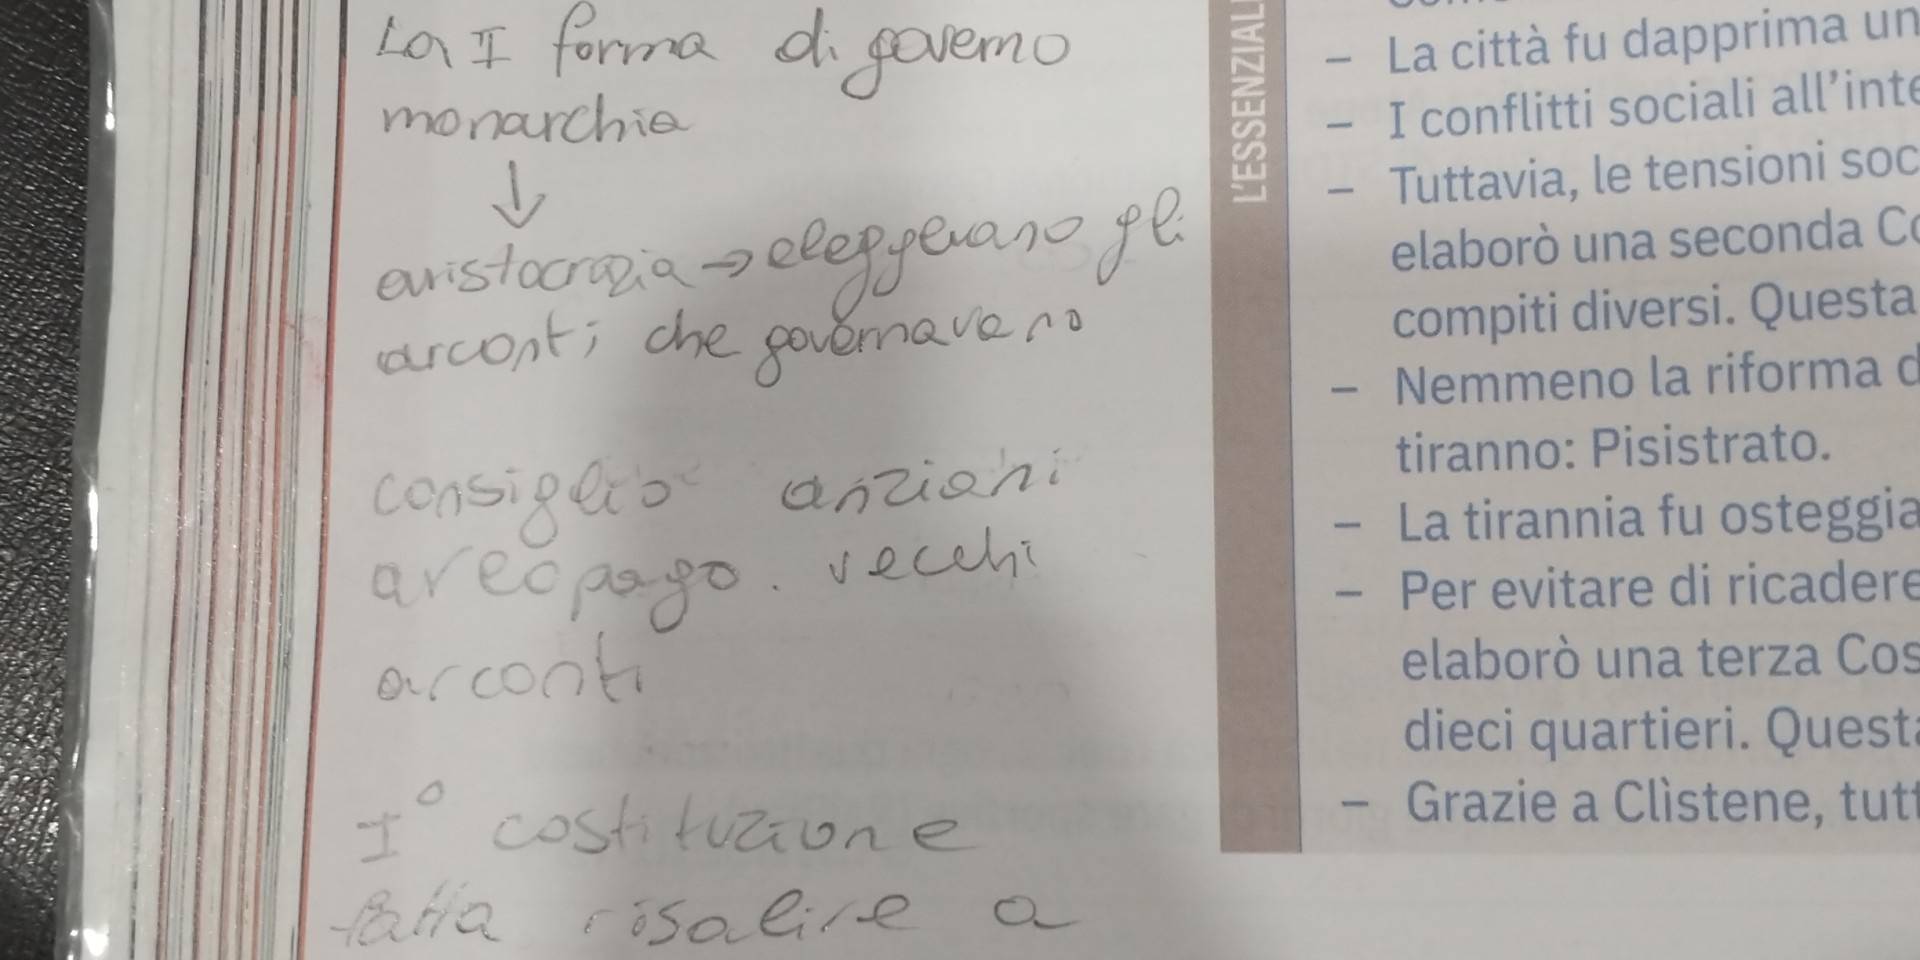 La I forma di governo
monarchia
↓
aristocrazia → eleggevano gli
arconti che governavano
consiglio anziani
areopago. vecchi
arconti
I° costituzione
fatta risalire a
L'ESSENZIAL
– La città fu dapprima un
– I conflitti sociali all'inte
– Tuttavia, le tensioni soc
elaborò una seconda Co
compiti diversi. Questa
– Nemmeno la riforma d
tiranno: Pisistrato.
– La tirannia fu osteggia
– Per evitare di ricadere
elaborò una terza Cos
dieci quartieri. Questa
– Grazie a Clìstene, tutt